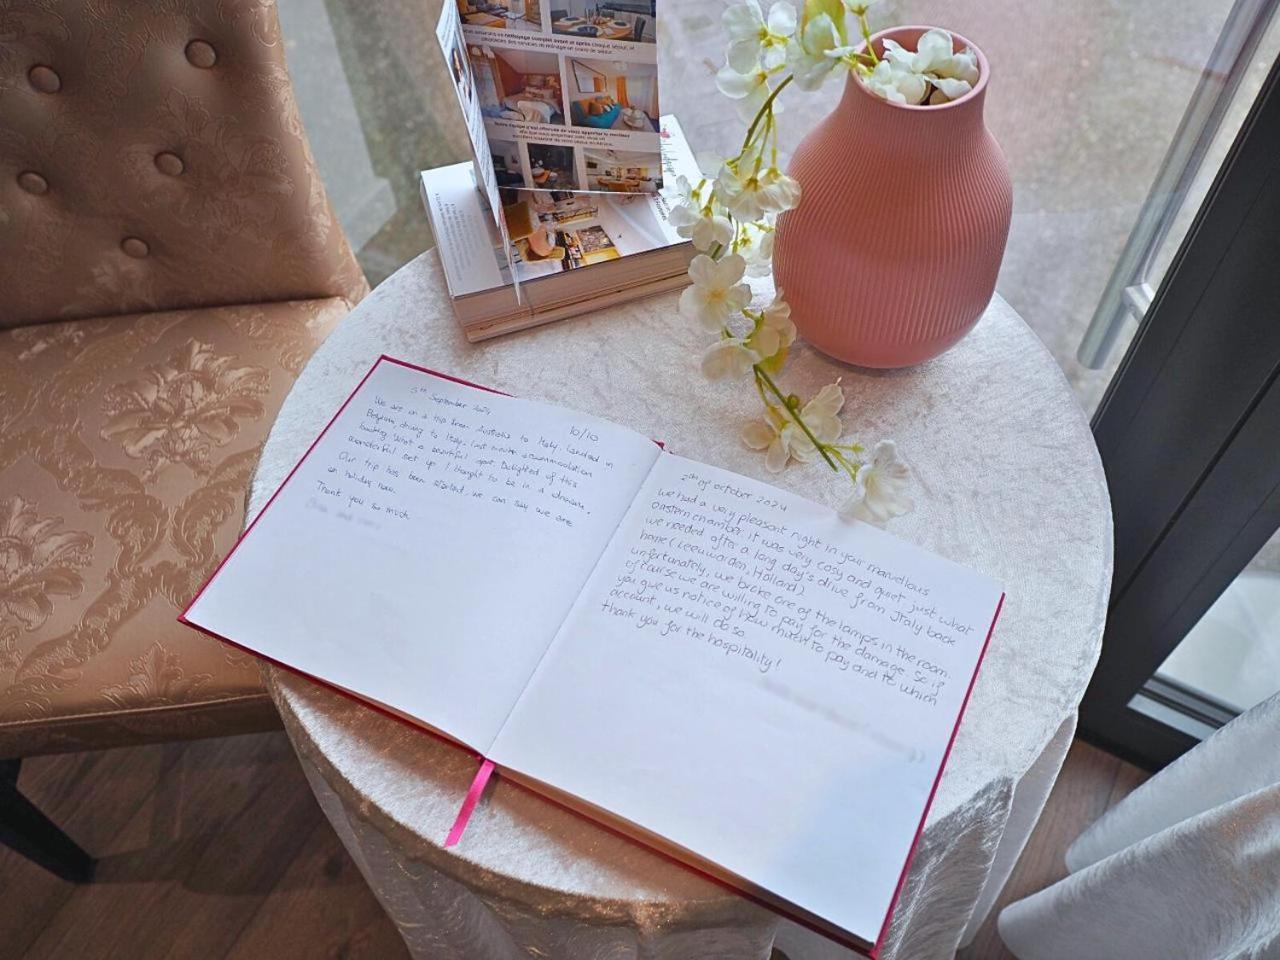 Notre équipe s'est efforcée de vous apporter le meilleur
5th September 2024
10/10
We are on a trip from Australia to Italy. Landed in
Belgium, driving to Italy. Last minute accommodation
booking. What a beautiful spot. Delighted of this
wonderful set up. I thought to be in a dream.
Our trip has been started, we can say we are
on holiday now.
Thank you so much
2th of october 2024
we had a very pleasant night in your marvellous
eastern chamber. it was very cosy and quiet, just what
we needed after a long day's drive from Italy back
home (Leeuwarden, Holland)
unfortunately, we broke one of the lamps in the room.
of course we are willing to pay for the damage. So if
you give us notice of how much to pay and to which
account, we will do so.
thank you for the hospitality!